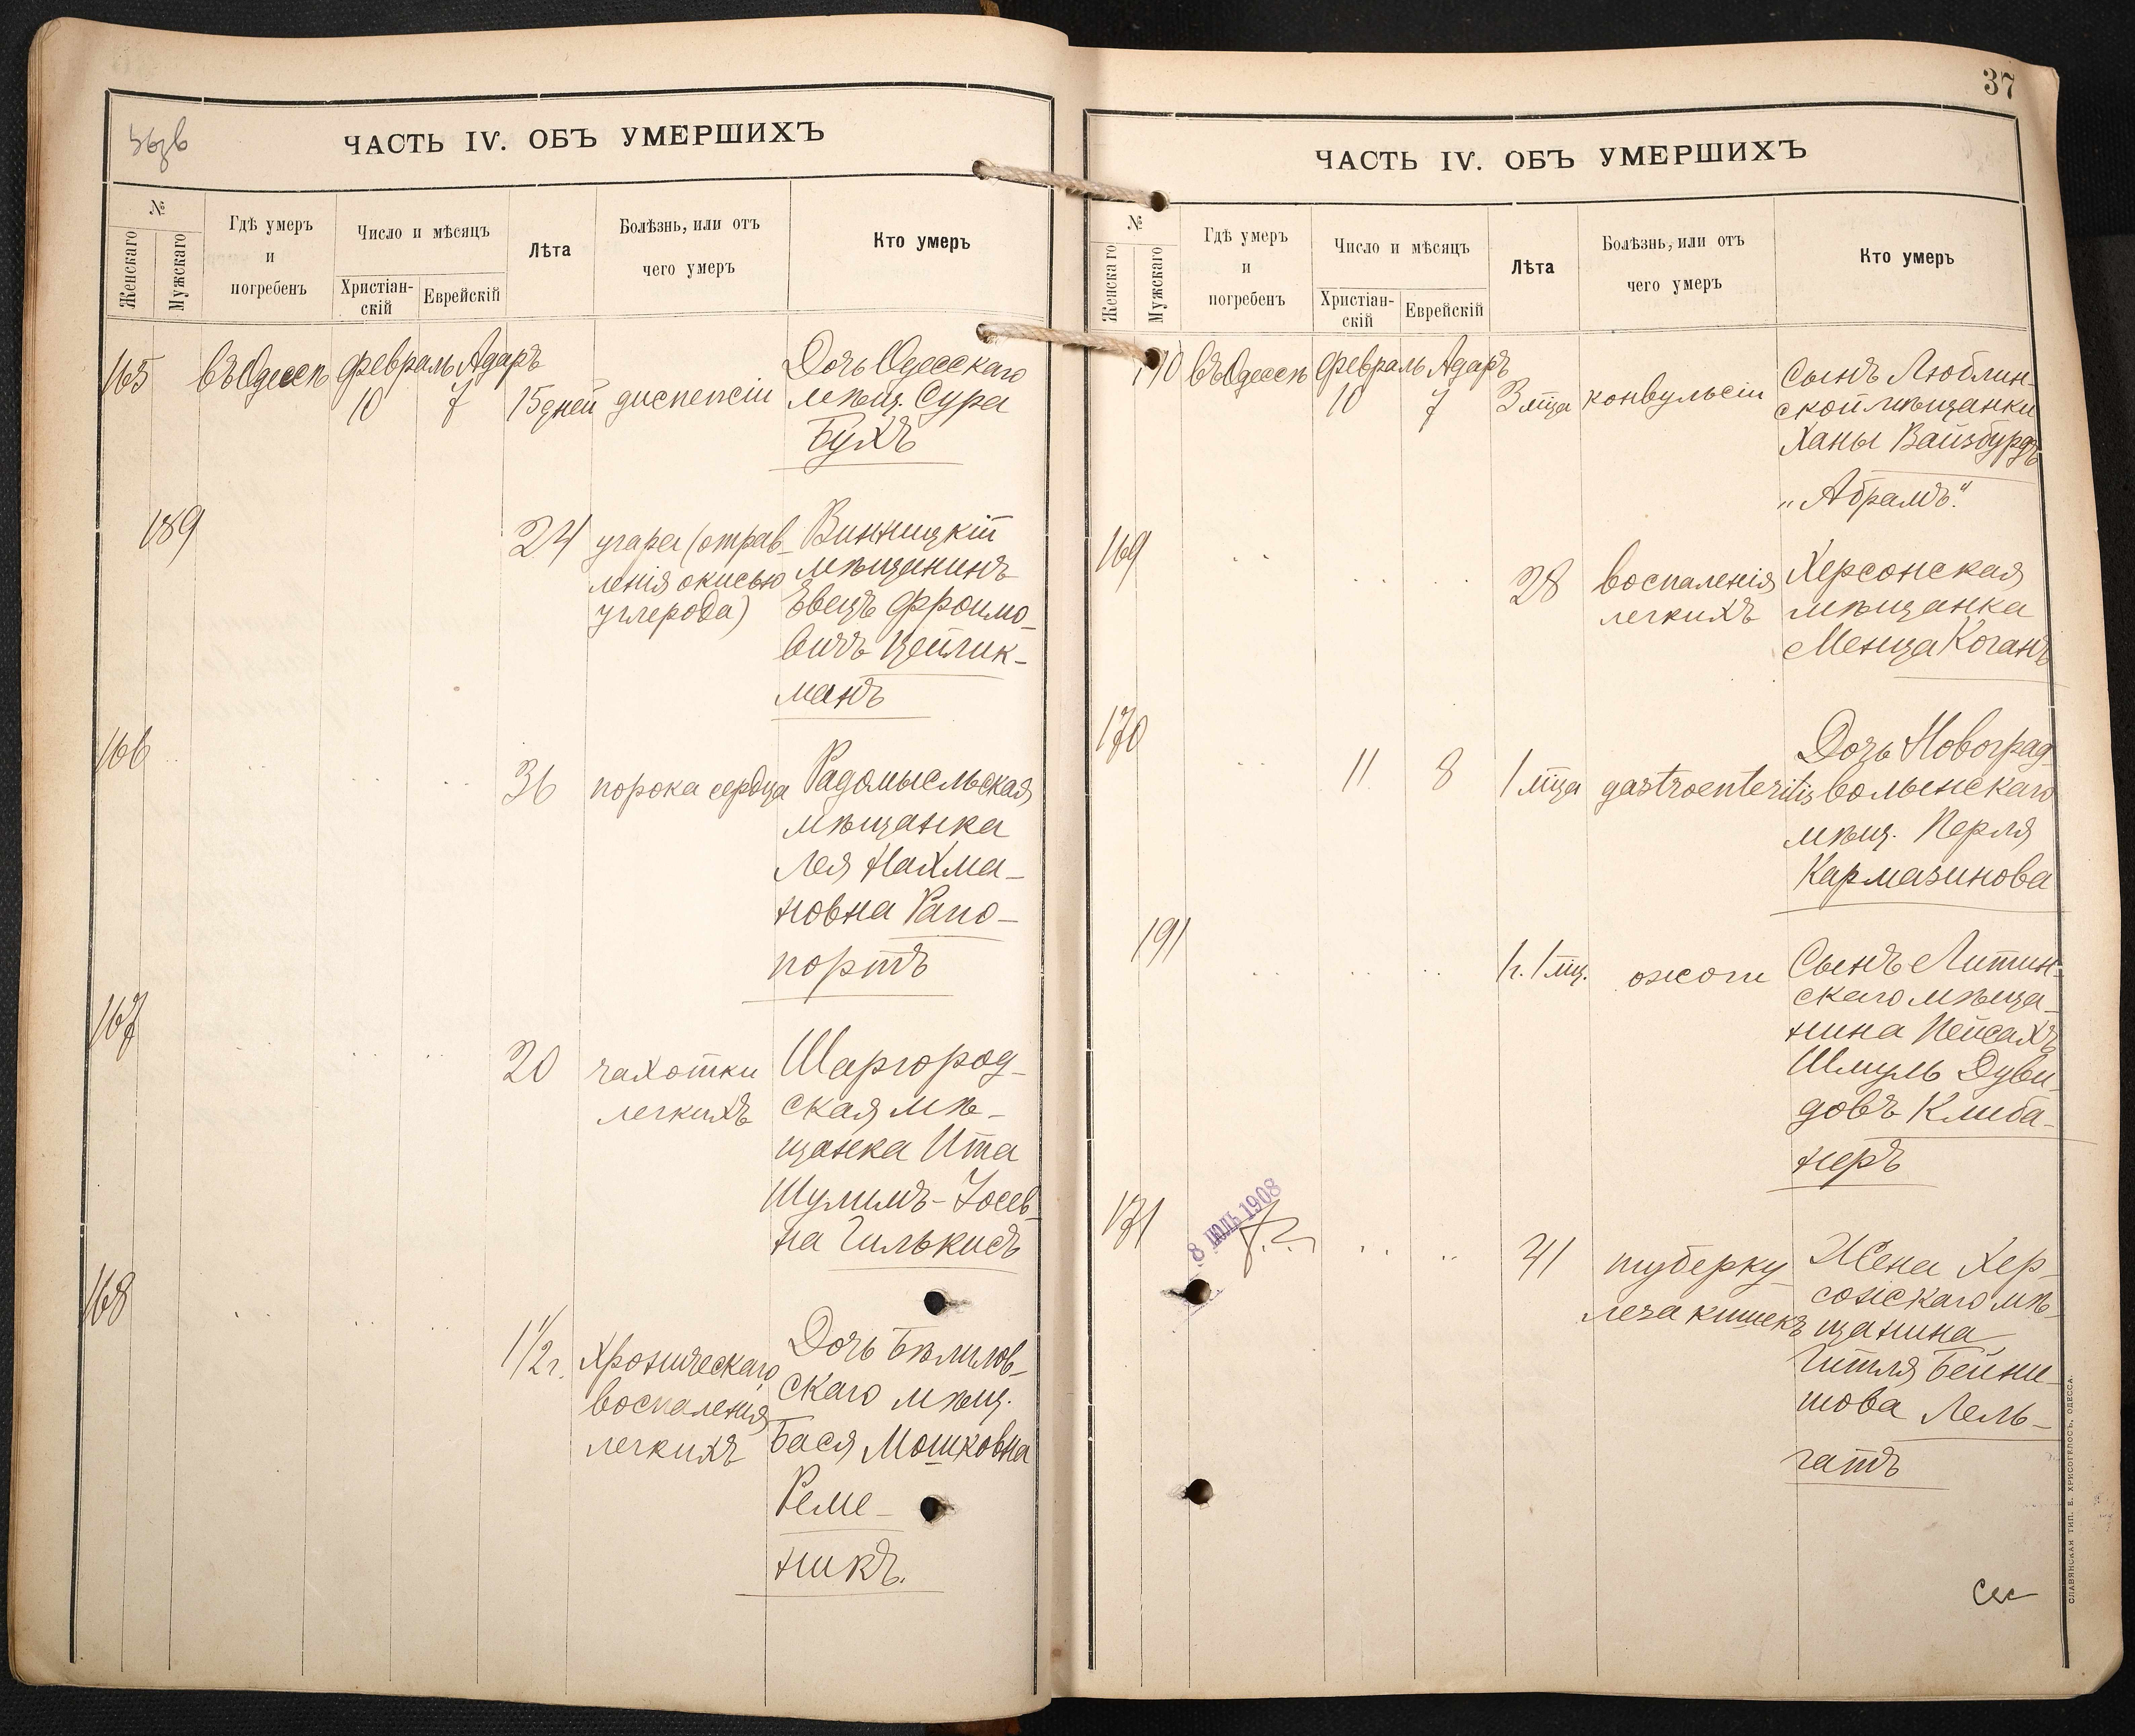 ЧАСТЬ IV. ОБЪ УМЕРШИХЪ
№
Женскаго
Мужскаго
Гдѣ умеръ
и
погребенъ
Число и мѣсяцъ
Христіан-
скій
Еврейскій
Лѣта
Болѣзнь, или отъ
чего умеръ
Кто умеръ
165
въ Одессѣ
февраль Адаръ
10 7
15 дней
диспепсіи
Дочь Одесскаго
мѣщ. Сура
Бухъ
189
24
угара (отрав-
ленія окисью
углерода)
Винницкій
мѣщанинъ
Фроимо-
вичъ Цейлик-
манъ
166
36
порока сердца
Радомысльская
мѣщанка
Лея Нахма-
новна Рапо-
портъ
167
20
чахотки
легкихъ
Шаргород-
ская мѣ-
щанка Ита
Шулимъ-Іосев-
на Гилькисъ
168
1 1/2 г.
Хроническаго
воспаленія
легкихъ
Дочь Бѣлилов-
скаго мѣщ.
Бася Мошковна
Реме-
никъ.
37
ЧАСТЬ IV. ОБЪ УМЕРШИХЪ
№
Женскаго
Мужскаго
Гдѣ умеръ
и
погребенъ
Число и мѣсяцъ
Христіан-
скій
Еврейскій
Лѣта
Болѣзнь, или отъ
чего умеръ
Кто умеръ
190
въ Одессѣ
февраль Адаръ
10 7
3 мѣца
конвульсіи
Сынъ Люблин-
ской мѣщанки
Ханы Вайсбурдъ
„Абрамъ“.
169
28
воспаленія
легкихъ
Херсонская
мѣщанка
Менца Коганъ
170
11 8
1 мѣца
gastroenteritis
Дочь Новоград-
волынскаго
мѣщ. Перля
Кармазинова
191
1 г. 1 мѣц.
ожоги
Сынъ Литин-
скаго мѣща-
нина Пейсахъ
Шмуль Дуви-
довъ Клиба-
неръ
171
8 ІЮЛЬ 1908
41
туберку
леза кишекъ
Жена Хер-
сонскаго мѣ-
щанина
Гитля Бейни-
шова Лель-
гатъ
СЛАВЯНСКАЯ ТИП. Е. ХРИСОГЕЛОСЪ, ОДЕССА.